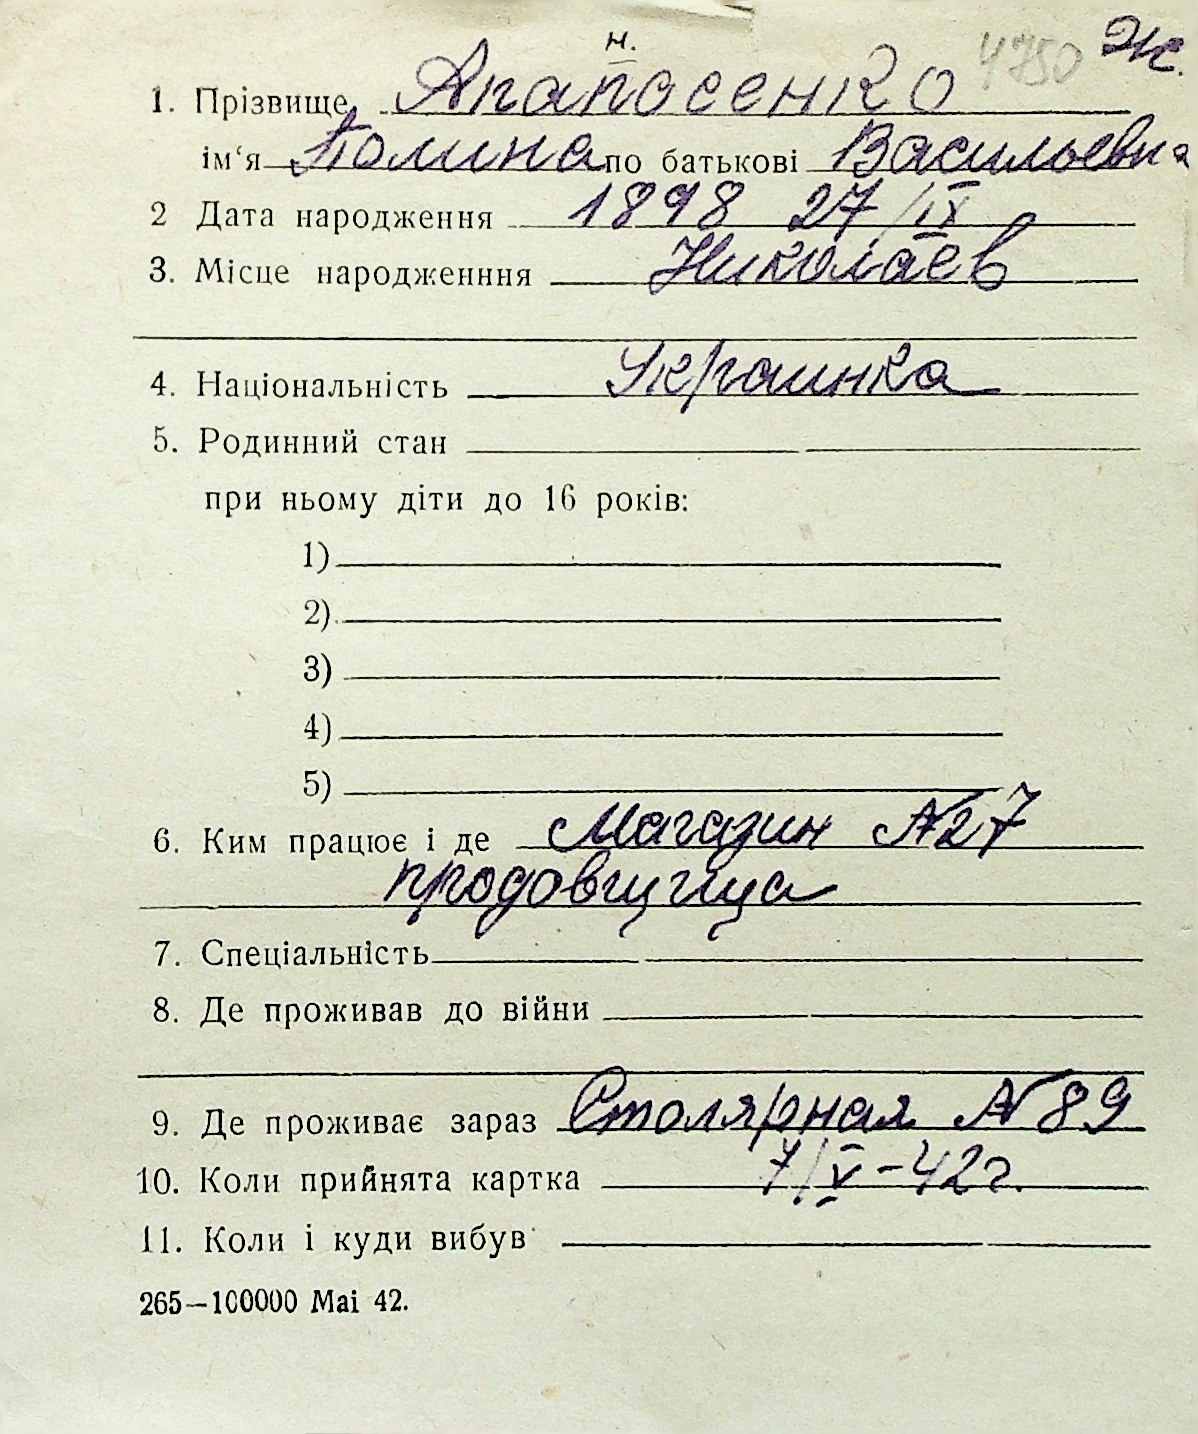 н.
4750 Ж.
1. Прізвище Апапосенко
ім‘я Полина по батькові Васильевна
2 Дата народження 1898 27/IX
3. Місце народженння Николаев
4. Національність Украинка
5. Родинний стан
при ньому діти до 16 років:
1)
2)
3)
4)
5)
6. Ким працює і де Магазин №27
продовщица
7. Спеціальність
8. Де проживав до війни
9. Де проживає зараз Столярная №89
10. Коли прийнята картка 7/V-42г.
11. Коли і куди вибув
265—100000 Mai 42.